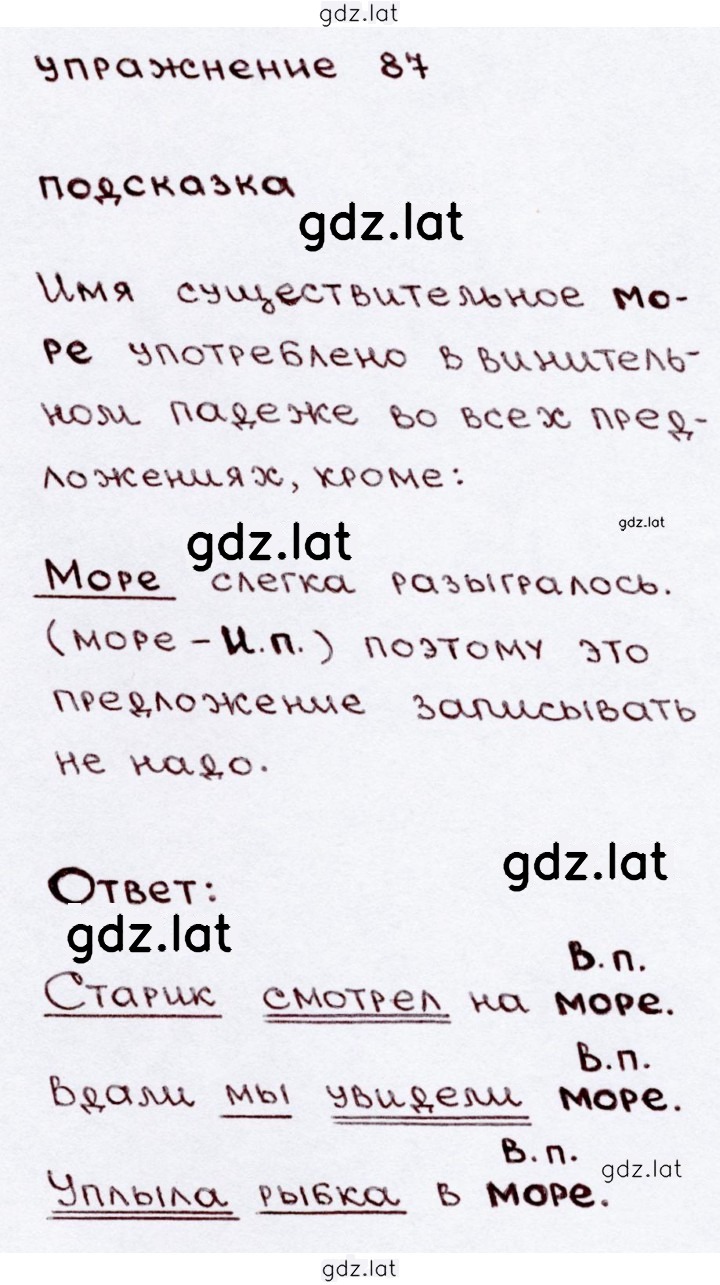 gdz.lat
упражнение 87
подсказка
gdz.lat
Имя существительное мо-
ре употреблено в винитель-
ном падеже во всех пред-
ложениях, кроме:
gdz.lat
gdz.lat
Море слегка разыгралось.
(море - И.п.) поэтому это
предложение записывать
не надо.
gdz.lat
Ответ:
gdz.lat
В.п.
Старик смотрел на море.
В.п.
Вдали мы увидели море.
В.п.
gdz.lat
Уплыла рыбка в море.
gdz.lat